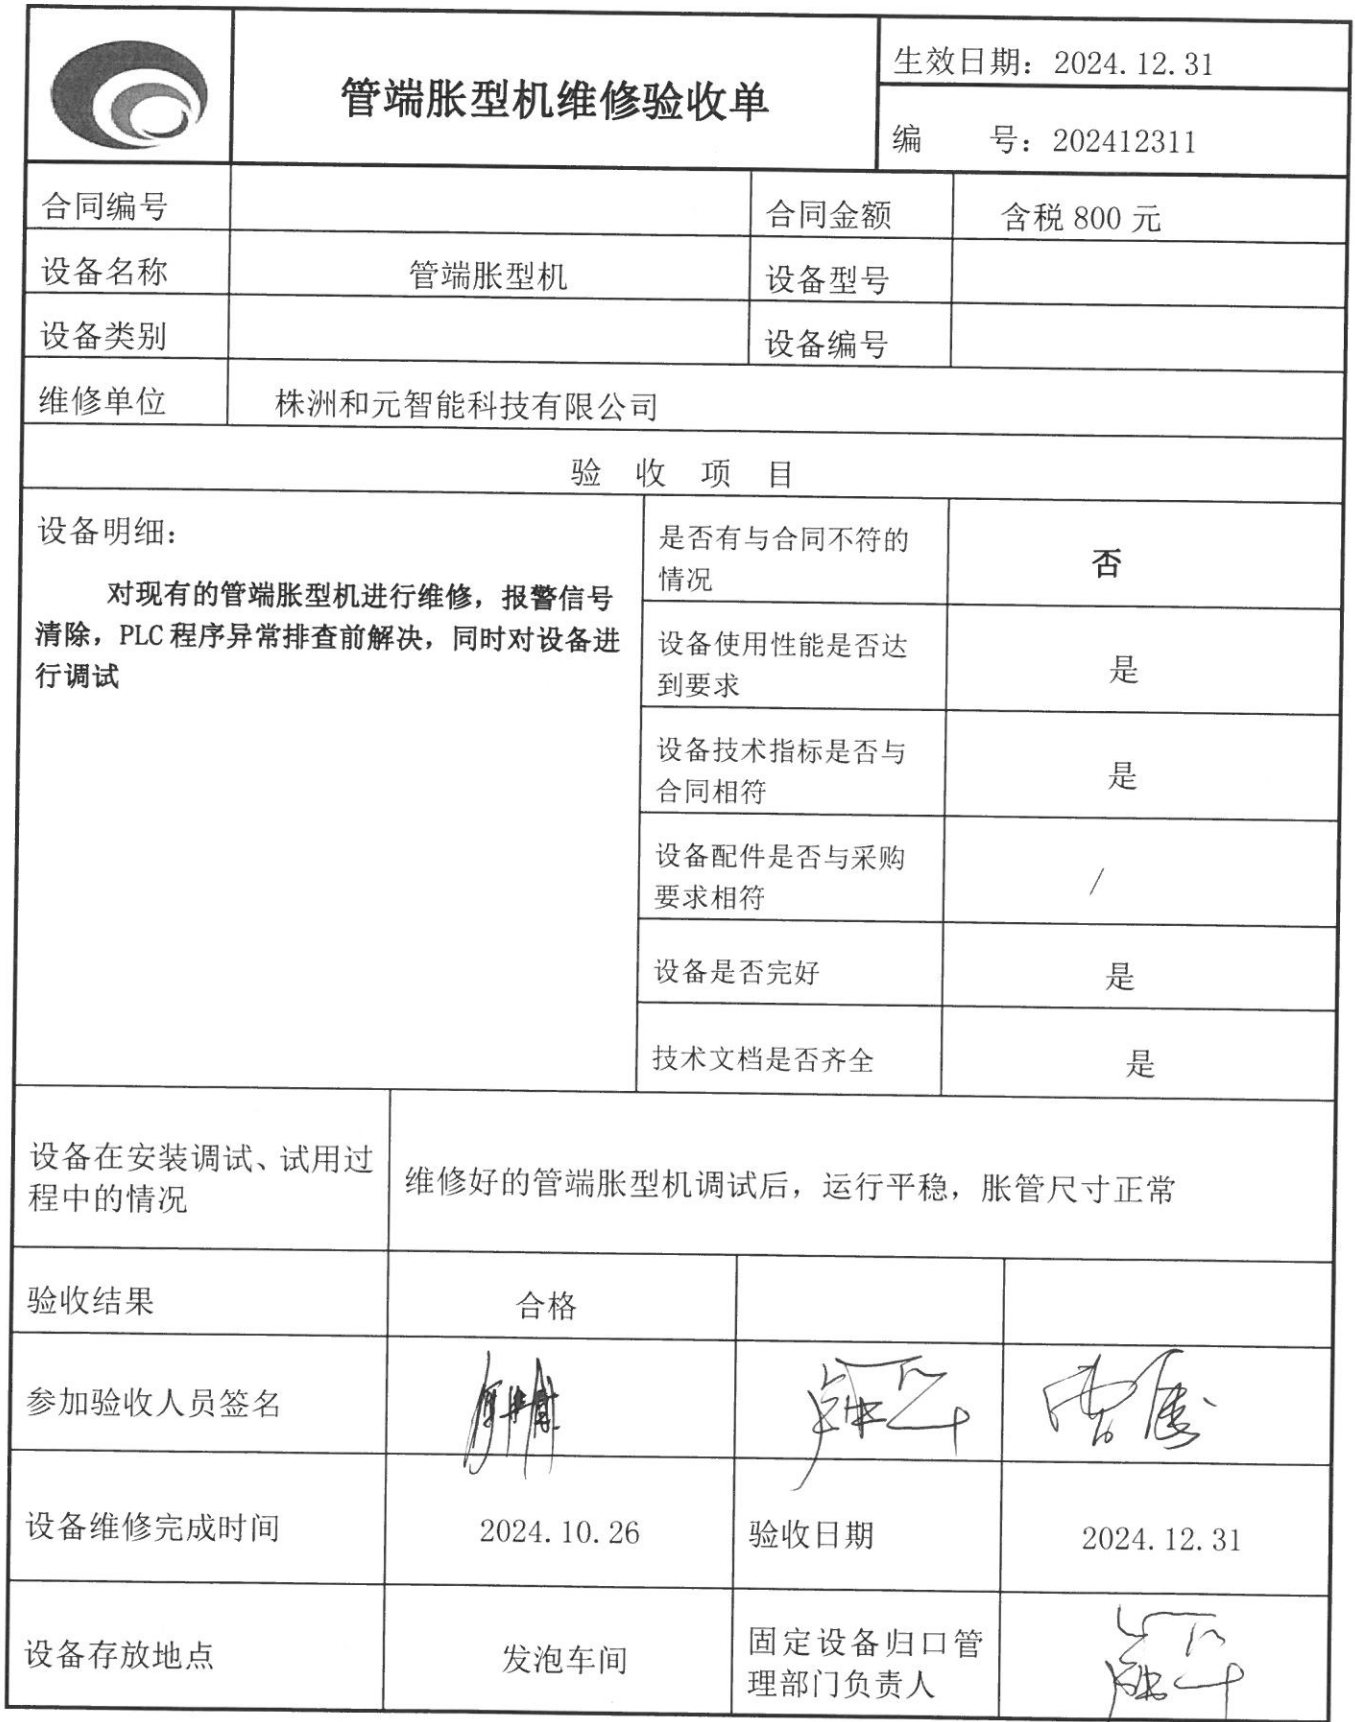 管端胀型机维修验收单
生效日期：2024.12.31
编 号：202412311
合同编号
合同金额 含税 800 元
设备名称 管端胀型机 设备型号
设备类别 设备编号
维修单位 株洲和元智能科技有限公司
验 收 项 目
设备明细：
对现有的管端胀型机进行维修，报警信号
清除，PLC 程序异常排查前解决，同时对设备进
行调试
是否有与合同不符的
情况
否
设备使用性能是否达
到要求
是
设备技术指标是否与
合同相符
是
设备配件是否与采购
要求相符
/
设备是否完好 是
技术文档是否齐全 是
设备在安装调试、试用过
程中的情况
维修好的管端胀型机调试后，运行平稳，胀管尺寸正常
验收结果 合格
参加验收人员签名
设备维修完成时间 2024.10.26 验收日期 2024.12.31
设备存放地点 发泡车间
固定设备归口管
理部门负责人